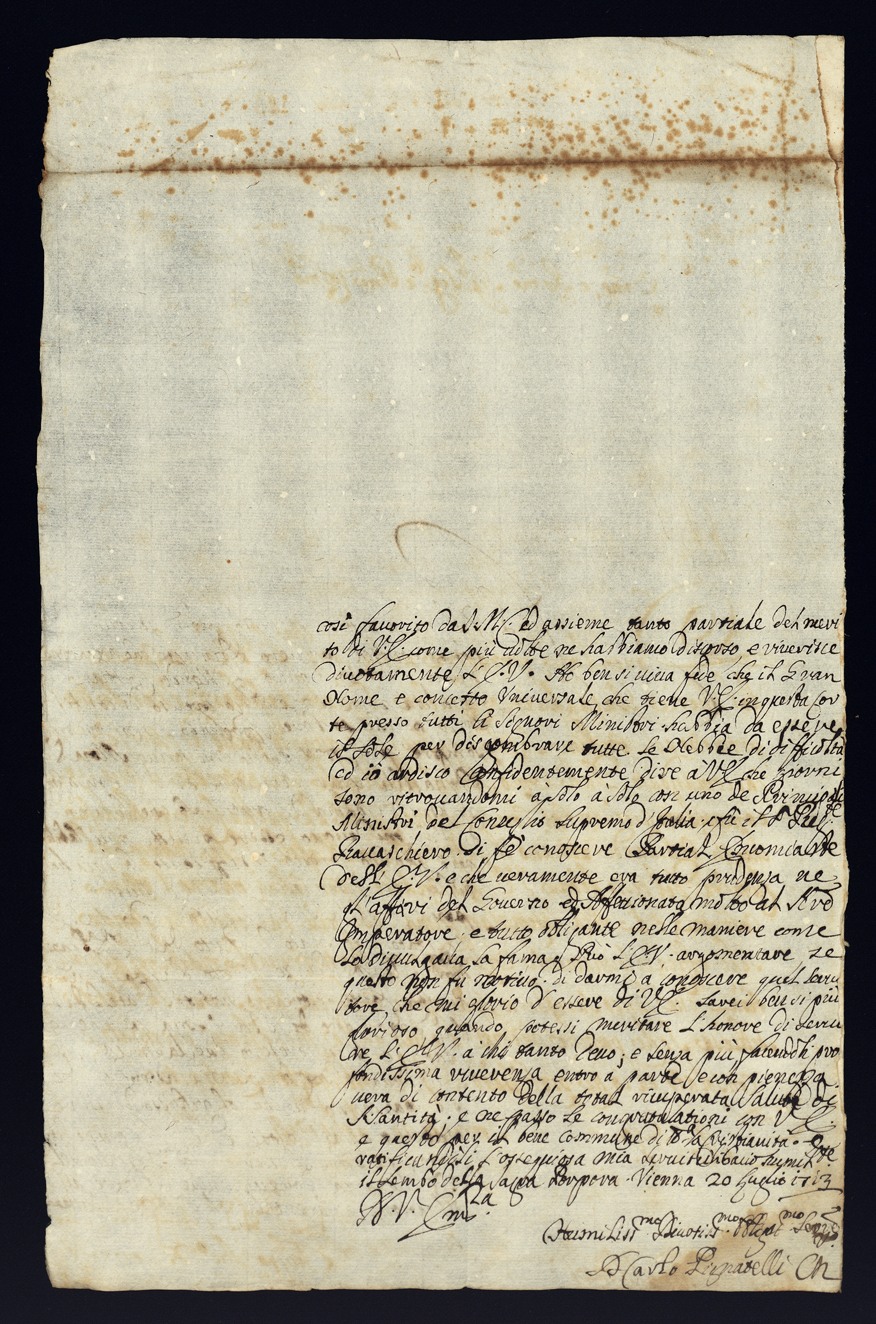 così favorito da S. M. ed assieme tanto partiale del meri
to di V. E. come più volte ne habbiamo discorso e riverisce
divotamente l'E. V. Ho ben si viva fede che il Gran
Nome e concetto Universale che tiene V. E. in questa Cor
te presso tutti li Signori Ministri habbia da essere
il Sole per disgombrare tutte le Nebbie di difficoltà
ed io ardisco Confidentemente dire à V. E. che giorni
sono ritrouandomi à solo à solo con uno de Principali
Ministri del Conseglio supremo d'Italia, fù il
Fraccaschiero di fè conoscere Partial
dell' E. V. e che veramente era tutto prudenza ne
gl'affari del Governo ed Affettionata molto al Nrō
Imperatore, e tutto obligante nelle maniere come
la divulgava la fama; Può l'E. V. argomentare se
questo non fu motivo di darmi à conoscere quel servi
tore che mi glorio d'essere di V. E. Sarei ben si più
glorioso quando potessi meritare l'honore di servi
re l'E. V. à chi tanto devo; e senza più facendoli pro
fondissima riverenza entro à parte e con pienezza
vera di contento della total ricuperata Salute di
S. Santità; e ne passo le congratulationi con V. E.
e questo per il bene commune di tta la Xpianità. E
ratificandoli l'ossequiosa mia servitù bacio humilmte
il lembo della Sacra Porpora. Vienna 20 Luglio 1713
D. V. Emza
Humilissmo Divotissmo Obligmo Servre
D Carlo Pignatelli CR